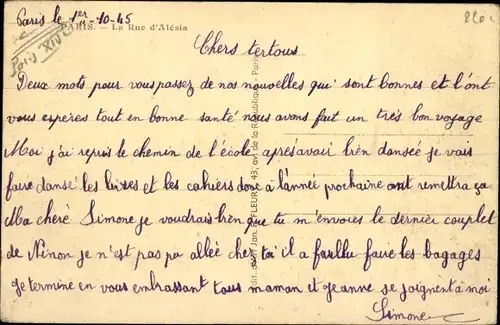 Paris le 1er-10-45
PARIS. — La Rue d'Alésia
Paris XIV
Chers tertous
Deux mots pour vous passez de nos nouvelles qui sont bonnes et l'ont
vous esperes tout en bonne santé nous avons fait un très bon voyage
Moi j'ai repris le chemin de l'école aprés avoir bien dansée je vais
faire dansé les livres et les cahiers donc à l'année prochaine ont remettra ça
Ma chéré Simone je voudrais bien que tu m'envoies le dernier couplet
de Ninon je n'est pas pu allée chez toi il a faullu faire les bagages
Je termine en vous embrassant tous maman et Jeanne se joignent à moi
Simone
FLEURY, 43, av. de la République - Paris